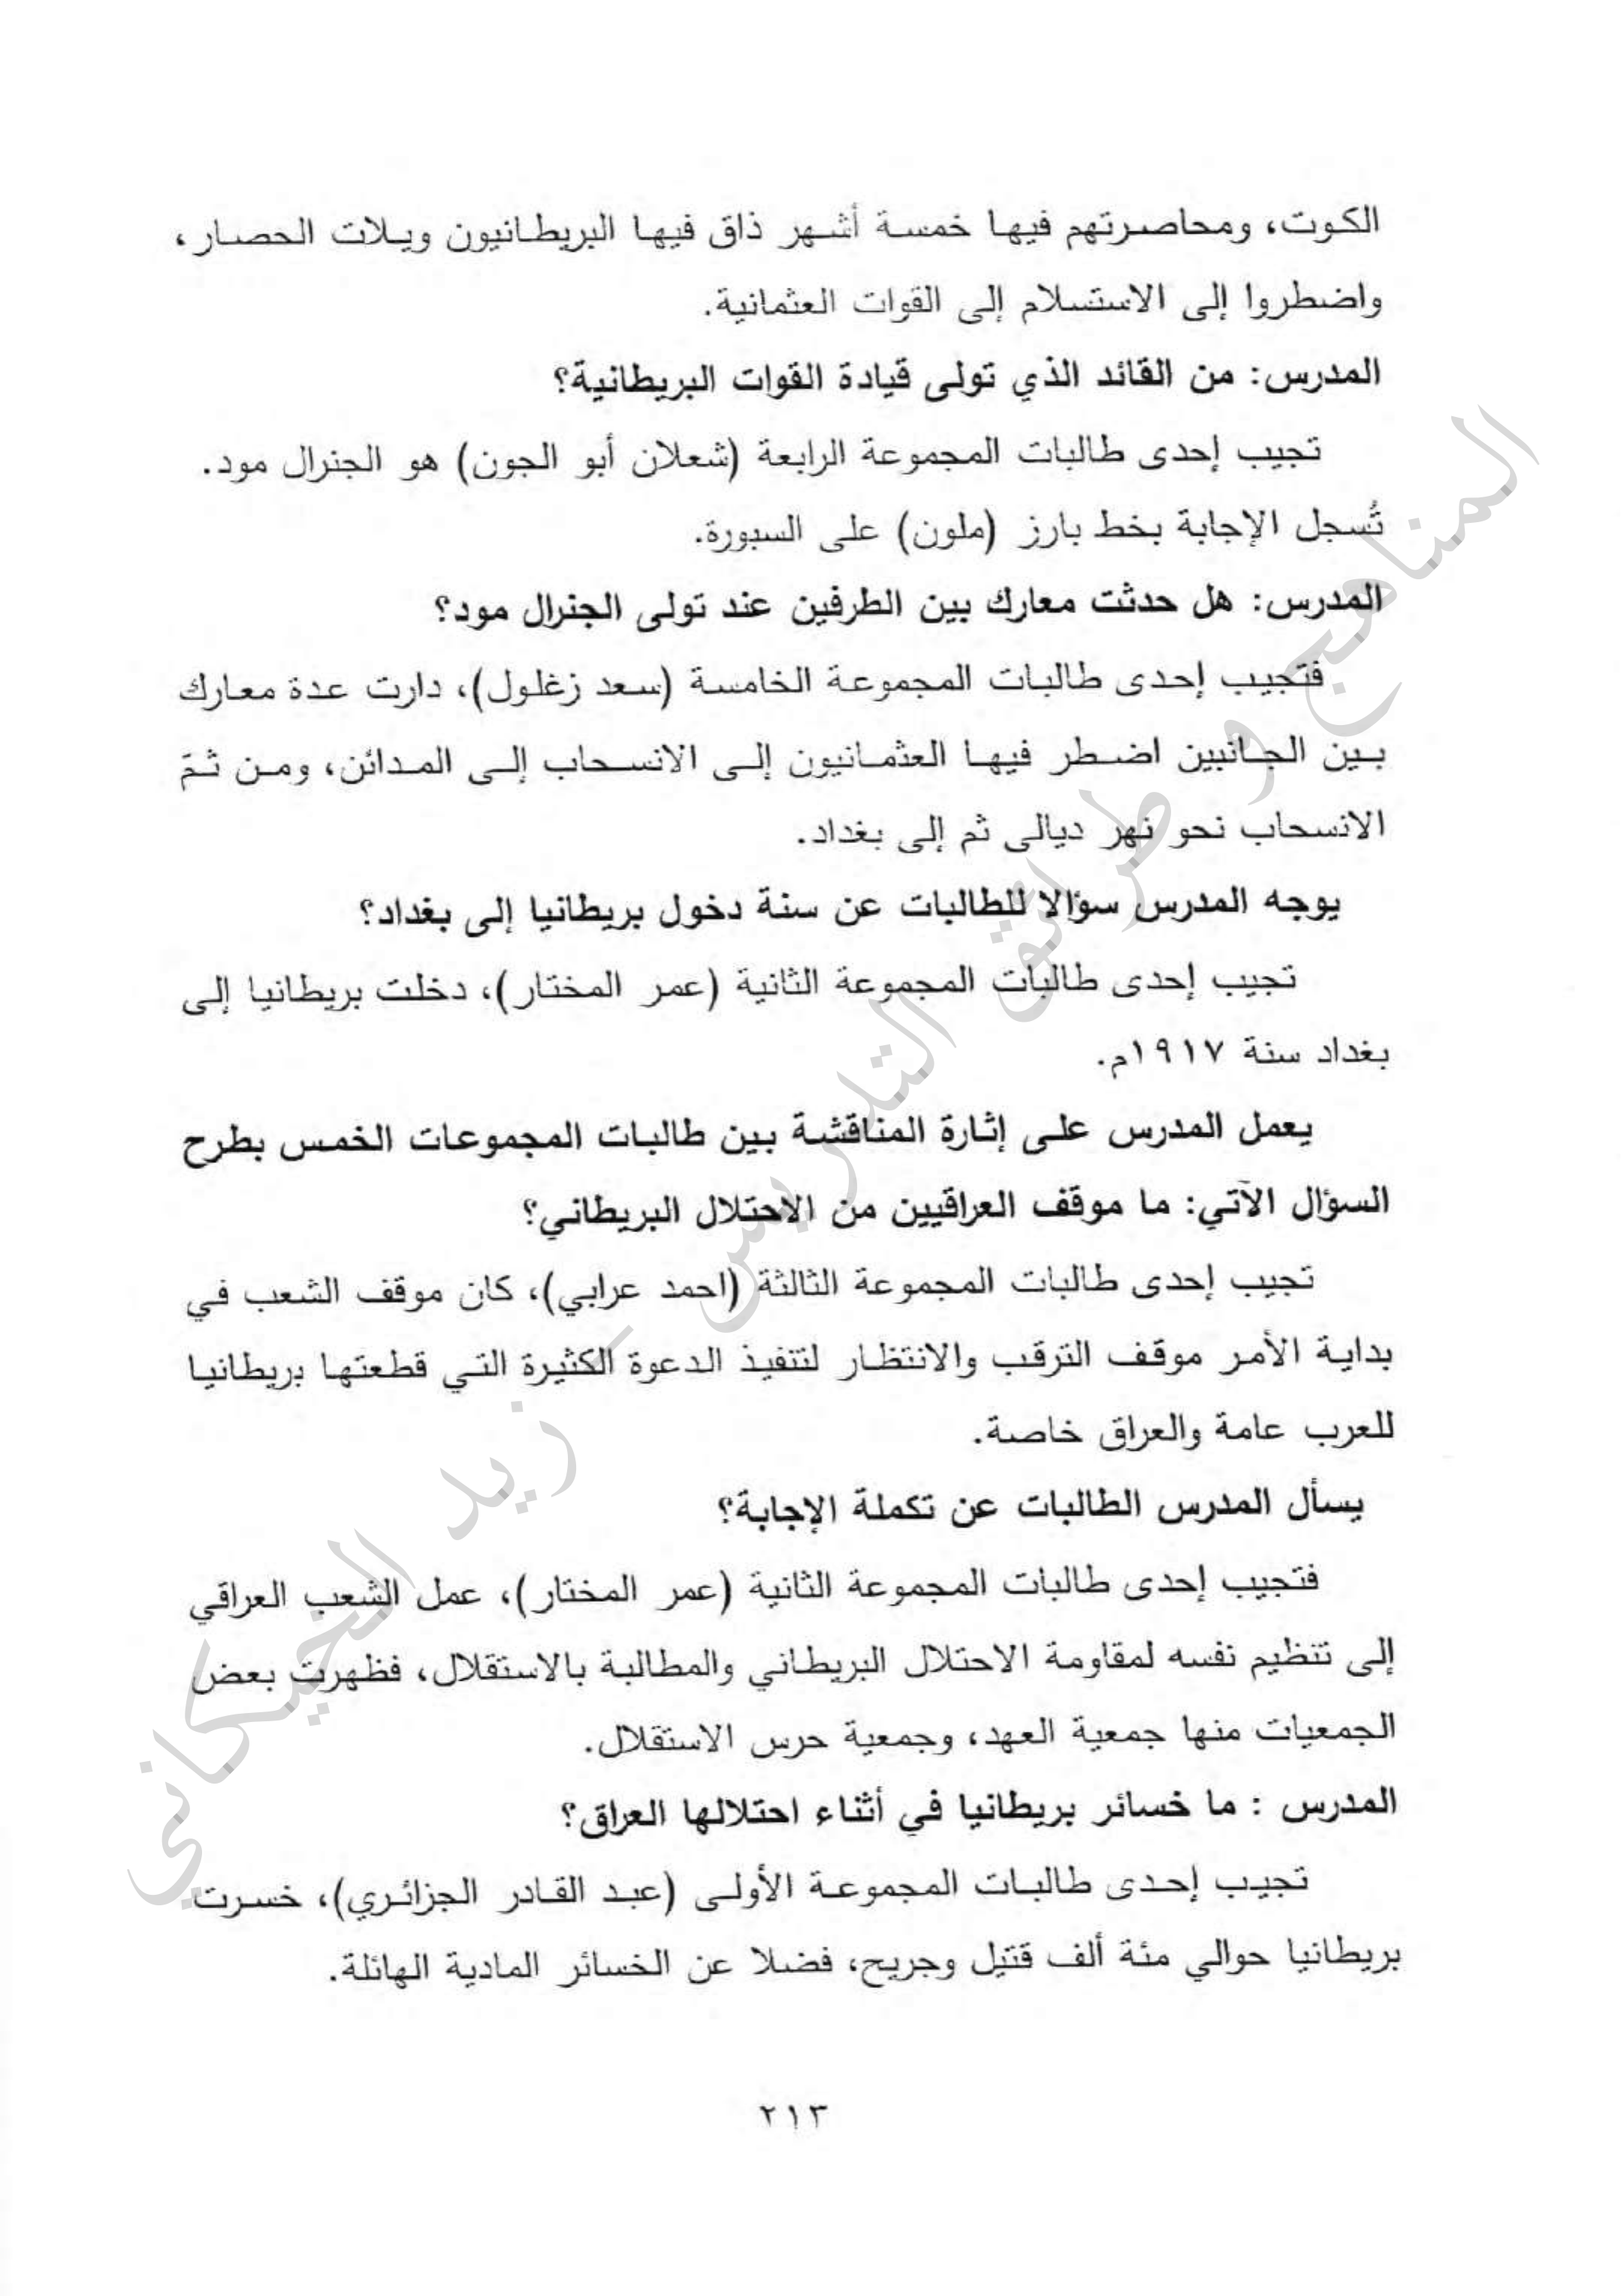 الكوت، ومحاصرتهم فيها خمسة أشهر ذاق فيها البريطانيون ويلات الحصار،
واضطروا إلى الاستسلام إلى القوات العثمانية.
المدرس: من القائد الذي تولى قيادة القوات البريطانية؟
تجيب إحدى طالبات المجموعة الرابعة (شعلان أبو الجون) هو الجنرال مود.
تُسجل الإجابة بخط بارز (ملون) على السبورة.
المدرس: هل حدثت معارك بين الطرفين عند تولى الجنرال مود؟
فتجيب إحدى طالبات المجموعة الخامسة (سعد زغلول)، دارت عدة معارك
بين الجانبين اضطر فيها العثمانيون إلى الانسحاب إلى المدائن، ومن ثمّ
الانسحاب نحو نهر ديالى ثم إلى بغداد.
يوجه المدرس سؤالا للطالبات عن سنة دخول بريطانيا إلى بغداد؟
تجيب إحدى طالبات المجموعة الثانية (عمر المختار)، دخلت بريطانيا إلى
بغداد سنة ١٩١٧م.
يعمل المدرس على إثارة المناقشة بين طالبات المجموعات الخمس بطرح
السؤال الآتي: ما موقف العراقيين من الاحتلال البريطاني؟
تجيب إحدى طالبات المجموعة الثالثة (احمد عرابي)، كان موقف الشعب في
بداية الأمر موقف الترقب والانتظار لتنفيذ الدعوة الكثيرة التي قطعتها بريطانيا
للعرب عامة والعراق خاصة.
يسأل المدرس الطالبات عن تكملة الإجابة؟
فتجيب إحدى طالبات المجموعة الثانية (عمر المختار)، عمل الشعب العراقي
إلى تنظيم نفسه لمقاومة الاحتلال البريطاني والمطالبة بالاستقلال، فظهرت بعض
الجمعيات منها جمعية العهد، وجمعية حرس الاستقلال.
المدرس : ما خسائر بريطانيا في أثناء احتلالها العراق؟
تجيب إحدى طالبات المجموعة الأولى (عبد القادر الجزائري)، خسرت
بريطانيا حوالي مئة ألف قتيل وجريح، فضلا عن الخسائر المادية الهائلة.
٢١٣
المناهج و طرائق التدريس - زيد الخيكاني